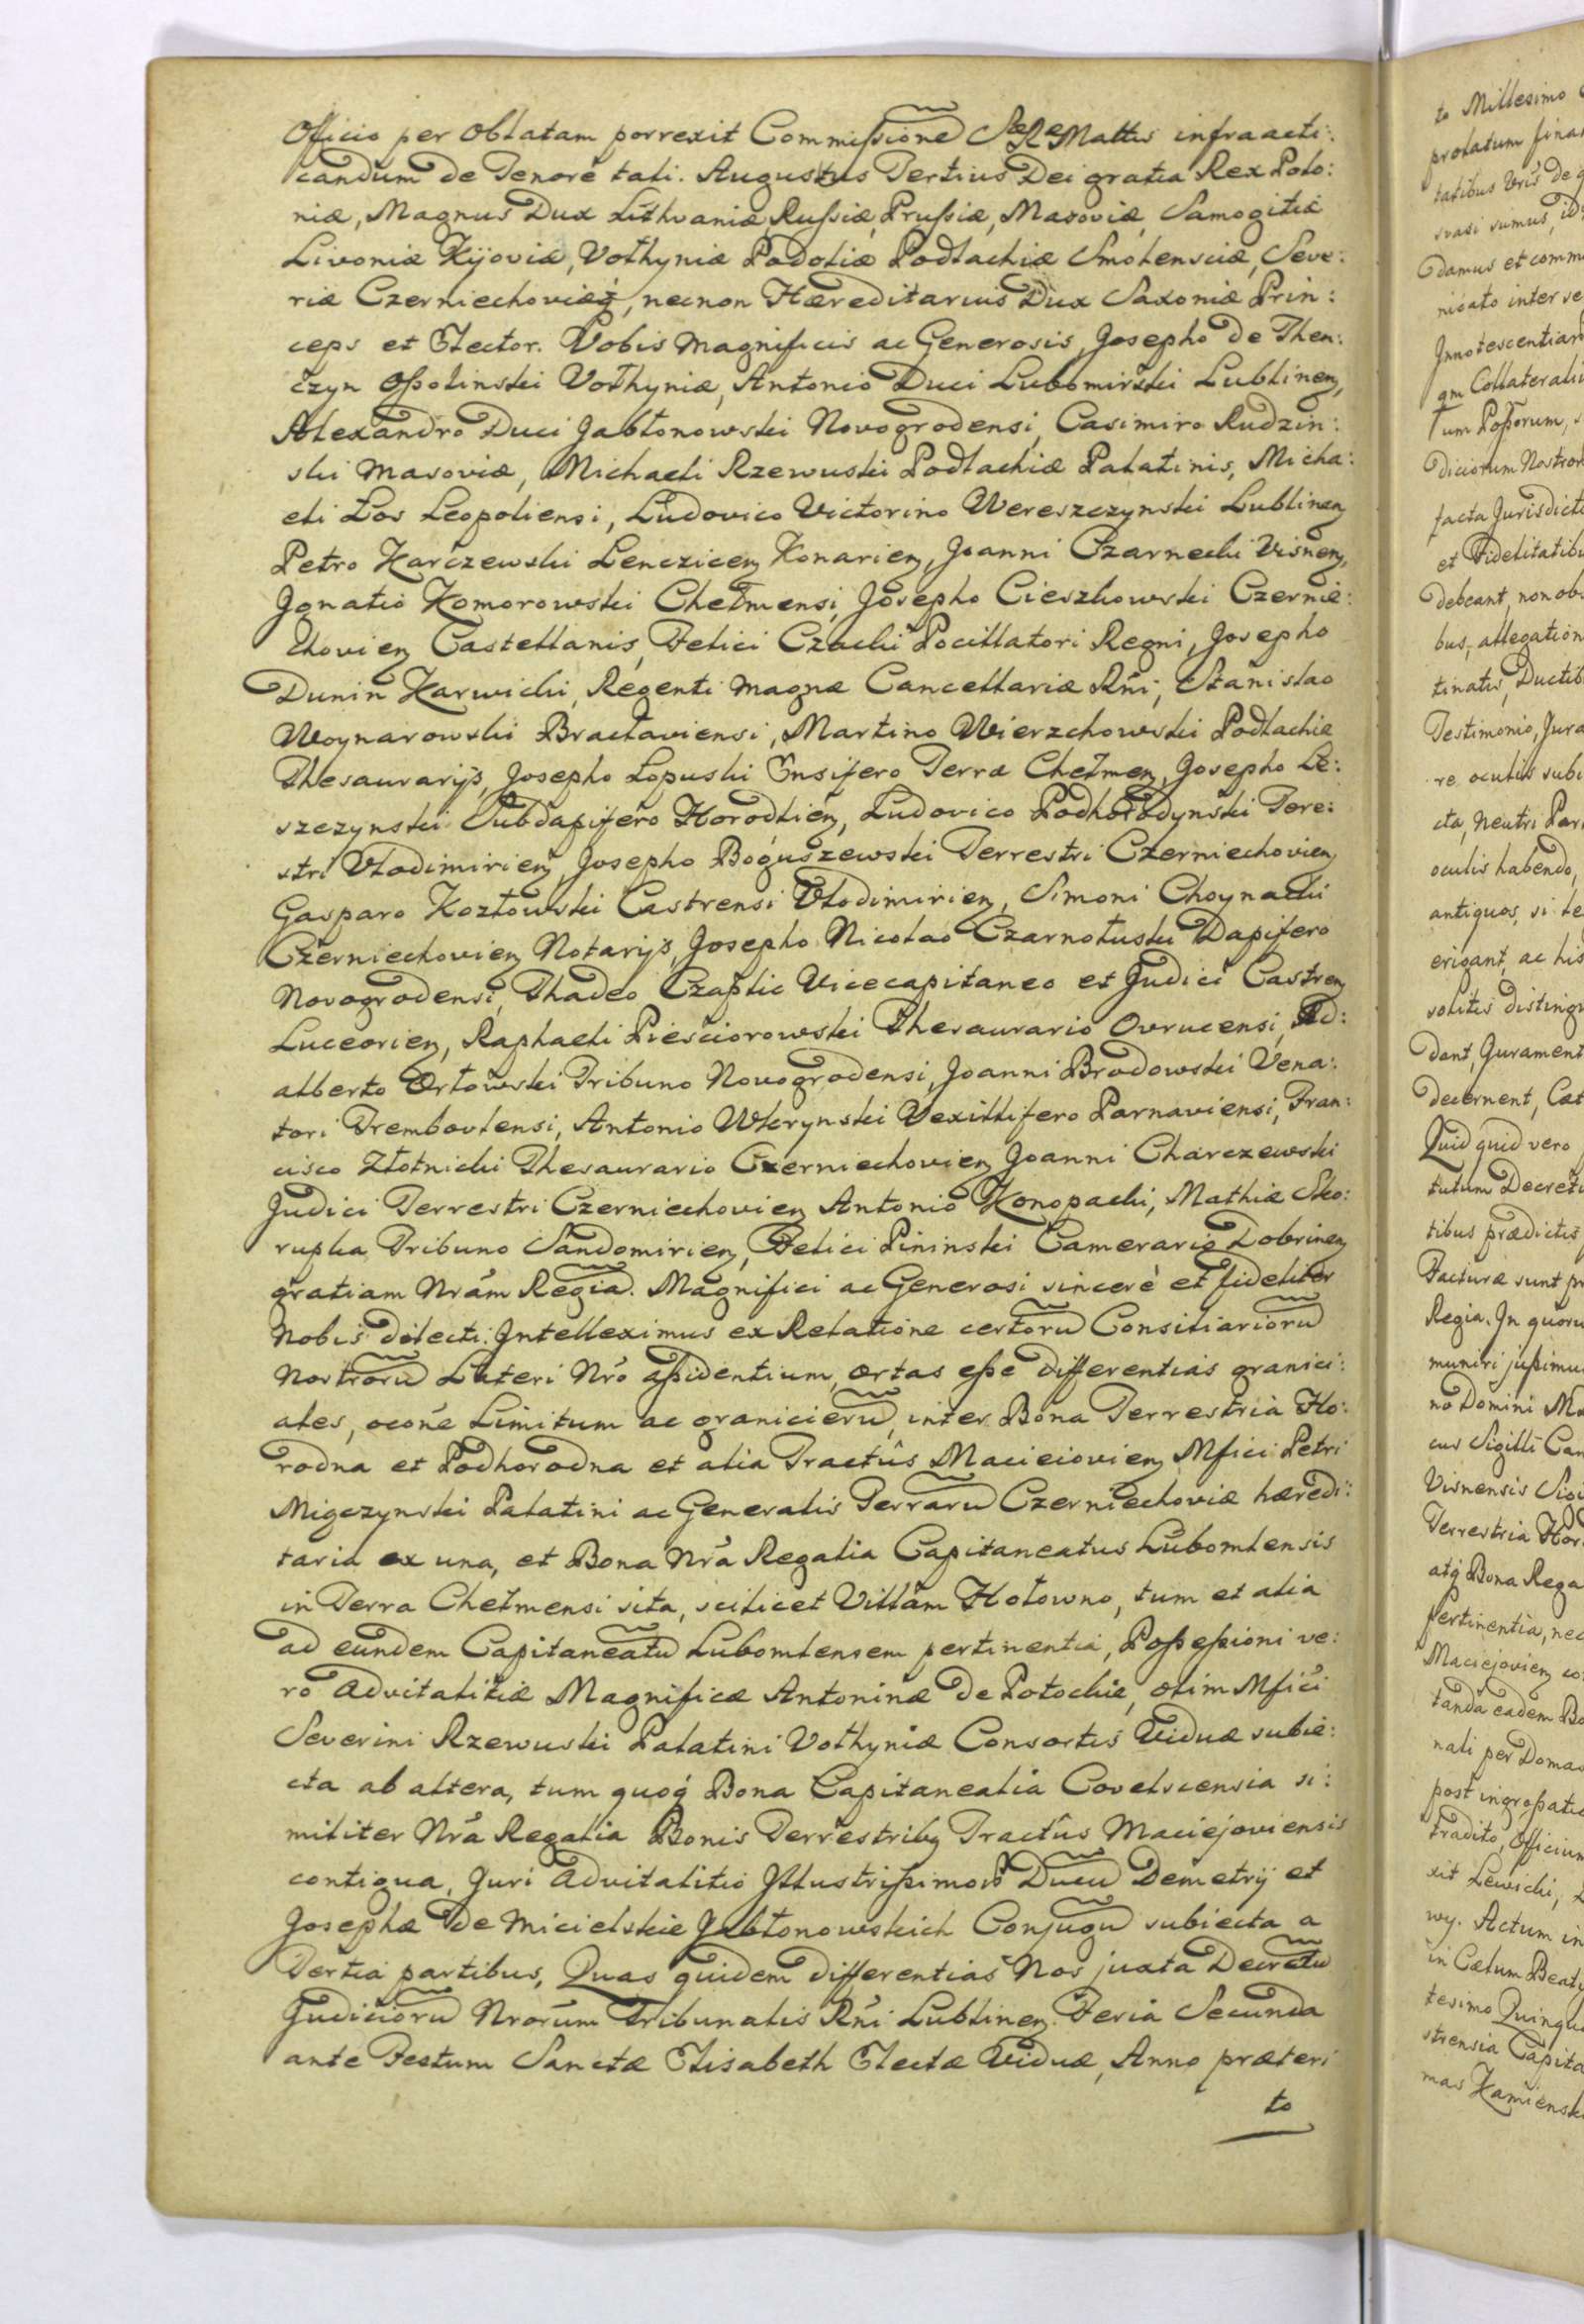 Officio per Oblatam porrexit Commissione SæRæMattis infraacti:
candum de Tenore tali. Augustus Tertius Dei gratia Rex Polo:
niæ, Magnus Dux Lithvaniæ, Russiæ, Prussiæ, Masoviæ, Samogitiæ
Livoniæ Kijoviæ, Volhyniæ Podoliæ Podlachiæ Smolensciæ, Seve:
riæ Czerniechoviæq, necnon Hæreditarius Dux Saxoniæ Prin:
ceps et Elector. Vobis Magnificis ac Generosis, Josepho de Then:
czyn Ossolinski Volhyniæ, Antonio Duci Lubomirski Lublinen,
Alexandro Duci Jabłonowski Novogrodensi, Casimiro Rudzin:
ski Masoviæ, Michaeli Rzewuski Podlachiæ Palatinis, Micha:
eli Łos Leopoliensi, Ludovico Victorino Wereszczynski Lublinen
Petro Karczewski Lenczicen Konarien, Joanni Czarnecki Visnen,
Ignatio Komorowski Chełmensi, Josepho Cieszkowski Czernie:
chovien Castellanis, Felici Czacki Pocillatori Regni, Josepho
Dunin Karwicki, Regenti Magnæ Cancellariæ Rni, Stanislao
Woynarowski Bractaviensi, Martino Wierzchowski Podlachiæ
Thesaurarijs, Josepho Łopuski Ensifero Terræ Chełmen, Josepho Le:
szczynski Subdapifero Horodlien, Ludovico Podhorodynski Tere:
stri Vlodimirien, Josepho Boguszewski Terrestri Czerniechovien
Gasparo Kozłowski Castrensi Vlodimirien, Simoni Choynacki
Czerniechovien Notarijs, Josepho Nicolao Czarnołuski Dapifero
Novogrodensi, Thadeo Czaplic Vicecapitaneo et Judici Castren
Luceorien, Raphaeli Piesciorowski Thesaurario Ovrucensi, Ad:
alberto Orłowski Tribuno Novogrodensi, Joanni Brodowski Vena:
tori Trembovlensi, Antonio Vexillifero Parnaviensi, Fran:
cisco Złotnicki Thesaurario Czerniechovien Joanni Charczewski
Judici Terrestri Czerniechovien Antonio Konopacki, Mathiæ Sko:
rupka Tribuno Sandomirien, Felici Pininski Camerario Dobrinen
gratiam Nram Regia. Magnifici ac Generosi sincerè et fideliter
Nobis dilecti. Intelleximus ex Relatione certoru Consiliarioru
Nostroru Lateri Nro assidentium, ortas esse differentias granici:
ales, ocone Limitum ac granicieru, inter Bona Terrestria Ho:
rodna et Podhorodna et alia Tractûs Macieiovien Mfici Petri
Miączynski Palatini ac Generalis Terraru Czerniechoviæ hæredi:
taria ex una, et Bona Nra Regalia Capitaneatus Lubomlensis
in Terra Chełmensi sita, scilicet Villam Hołowno, tum et alia
ad eundem Capitaneatu Lubomlensem pertinentia, Possessioni ve:
ro Advitalitiæ Magnificæ Antoninæ de Potockie, olim Mfici
Severini Rzewuski Palatini Volhyniæ Consortis Viduæ subie:
cta ab altera, tum quoq Bona Capitanealia Covelscensia si:
militer Nra Regalia Bonis Terrestribq Tractûs Maciejoviensis
contigua, Juri Advitalitio Illustrissimor Ducu Demetrij et
Josephæ de Micielskie Jabłonowskich Conjugu subiecta a
Tertia partibus, Quas quidem differentias Nos juxta Decretu
Judicioru Nrorum Tribunalis Rni Lublinen. Feria Secunda
ante Festum Sanctæ Elisabeth Electæ Viduæ, Anno præteri
to